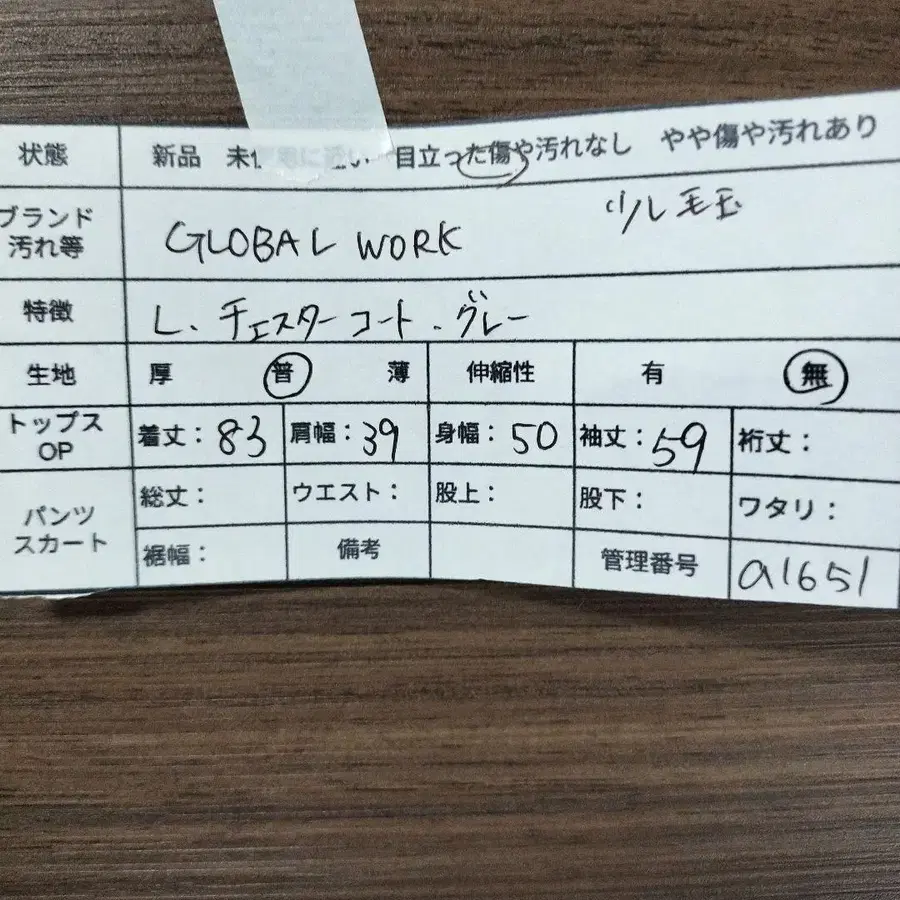 状態 新品 未使用に近い 目立った傷や汚れなし やや傷や汚れあり
ブランド
汚れ等 GLOBAL WORK 少し毛玉
特徴 L. チェスターコート. グレー
生地 厚 普 薄 伸縮性 有 無
トップス
OP 着丈: 83 肩幅: 39 身幅: 50 袖丈: 59 裄丈:
パンツ
スカート 総丈: ウエスト: 股上: 股下: ワタリ:
裾幅: 備考 管理番号 a1651